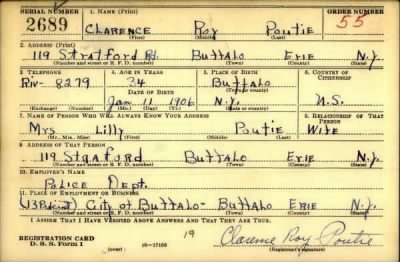 SERIAL NUMBER 1. NAME (Print) ORDER NUMBER
2689 CLARENCE Roy Poutie 55
(First) (Middle) (Last)
2. ADDRESS (Print)
119 Stratford Rd. Buffalo Erie N.Y.
(Number and street or R. F. D. number) (Town) (County) (State)
3. TELEPHONE 4. AGE IN YEARS 5. PLACE OF BIRTH 6. COUNTRY OF CITIZENSHIP
Riv- 8279 34 Buffalo
DATE OF BIRTH (Town or county)
Jan 11 1906 N.Y. U.S.
(Exchange) (Number) (Mo.) (Day) (Yr.) (State or country)
7. NAME OF PERSON WHO WILL ALWAYS KNOW YOUR ADDRESS 8. RELATIONSHIP OF THAT PERSON
Mrs. Lilly Poutie Wife
(Mr., Mrs., Miss) (First) (Middle) (Last)
9. ADDRESS OF THAT PERSON
119 Straford Buffalo Erie N.Y.
(Number and street or R. F. D. number) (Town) (County) (State)
10. EMPLOYER'S NAME
Police Dept.
11. PLACE OF EMPLOYMENT OR BUSINESS
City of Buffalo- Buffalo Erie N.Y.
(Number and street or R. F. D. number) (Town) (County) (State)
I AFFIRM THAT I HAVE VERIFIED ABOVE ANSWERS AND THAT THEY ARE TRUE.
REGISTRATION CARD 19 Clarence Roy Poutie
D. S. S. Form 1 (over) 16-17105 (Registrant's signature)